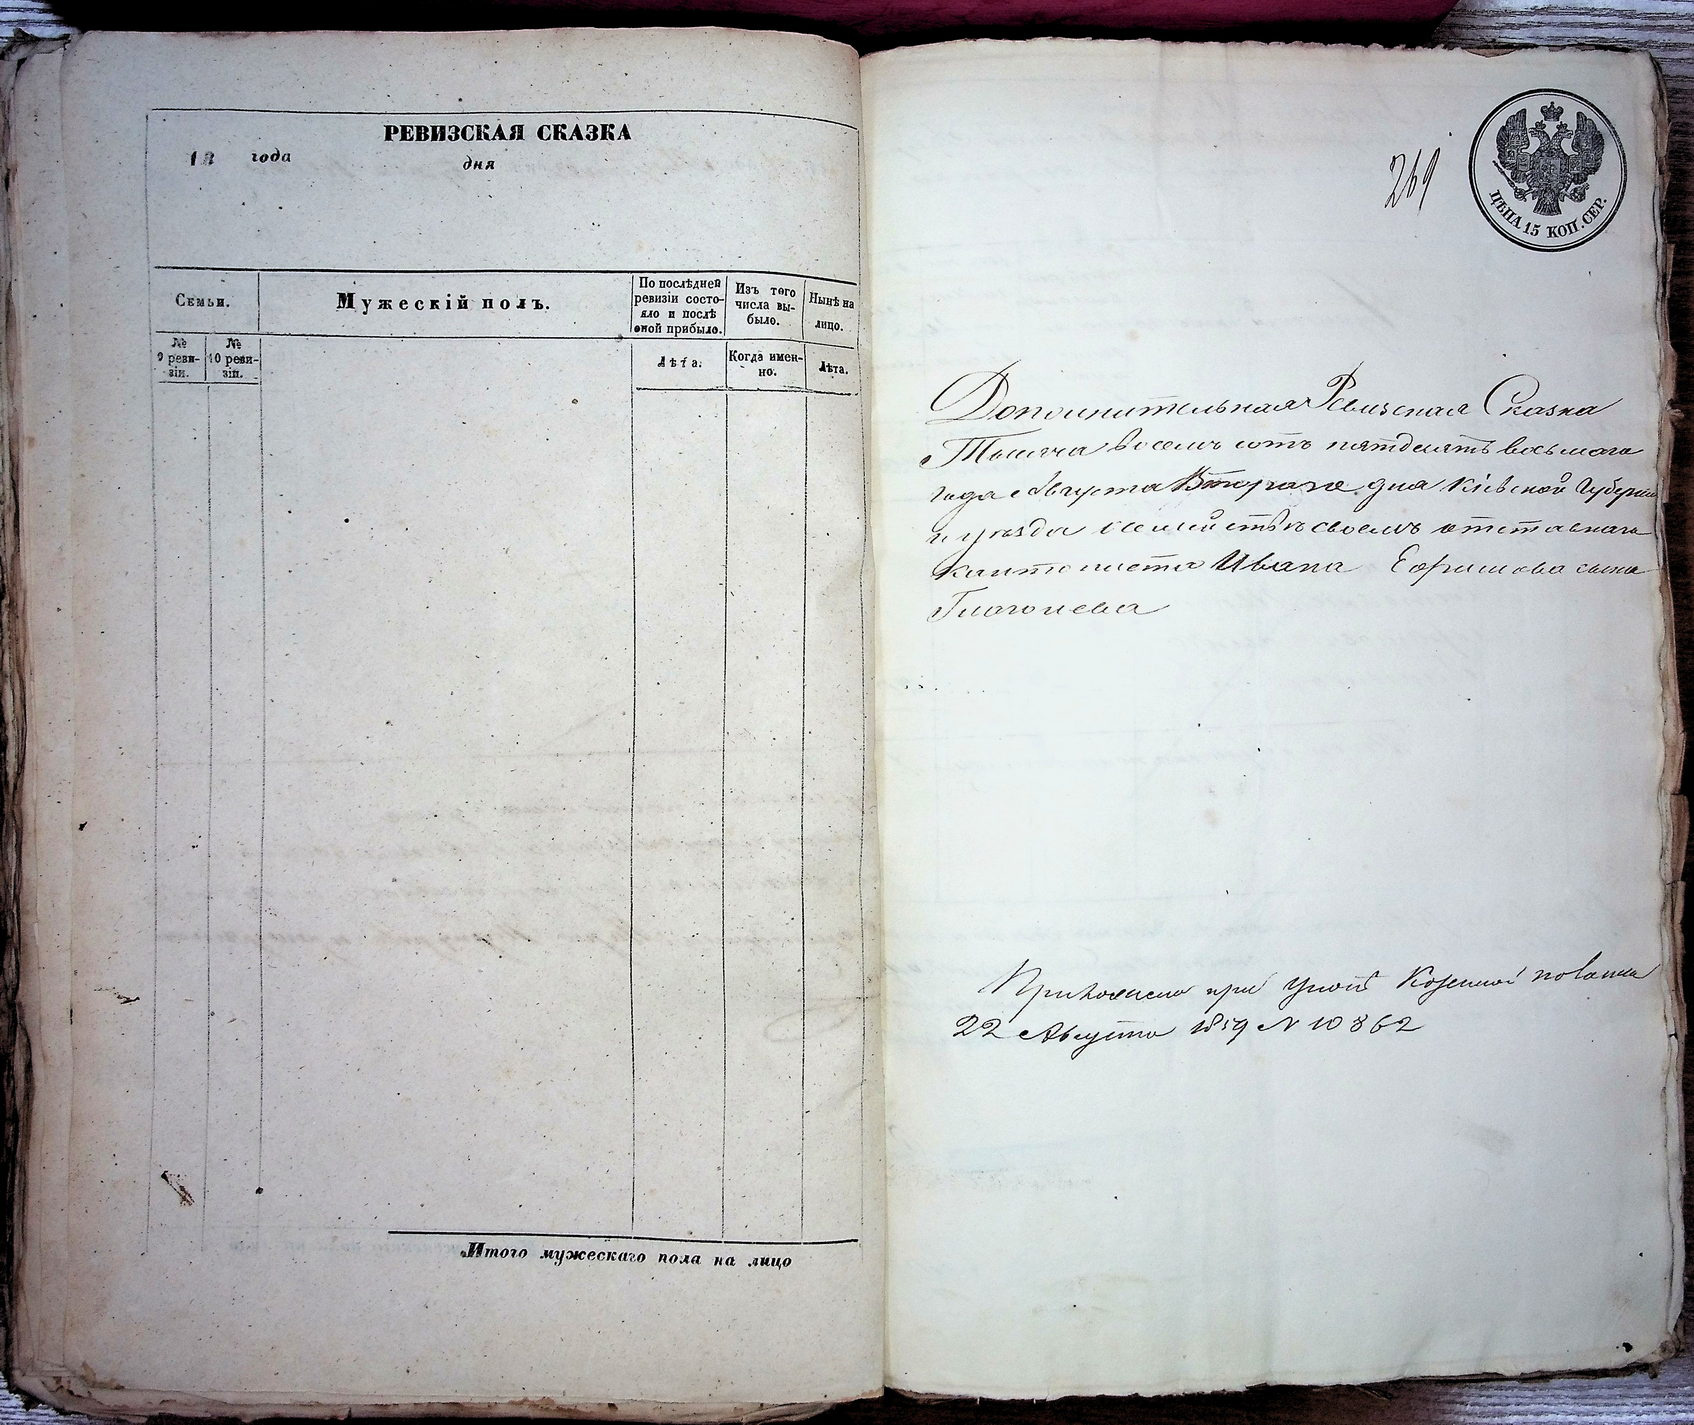 РЕВИЗСКАЯ СКАЗКА
18 года дня
Семьи.
Мужескій полъ.
По послѣдней ревизіи состояло и послѣ оной прибыло.
Изъ того числа выбыло.
Нынѣ на лицо.
№ 9 ревизіи.
№ 10 ревизіи.
Лѣта.
Когда именно.
Лѣта.
Итого мужескаго пола на лицо
269
ЦѢНА 15 КОП. СЕР.
Дополнительная Ревизская Сказка
Тысяча восемь сотъ пятдесятъ восьмаго
года Августа Втораго дня Кіевской Губерніи
и уѣзда о семействѣ своемъ отставнаго
кантониста Ивана Ефимова сына
22 Августа 1859 № 10862